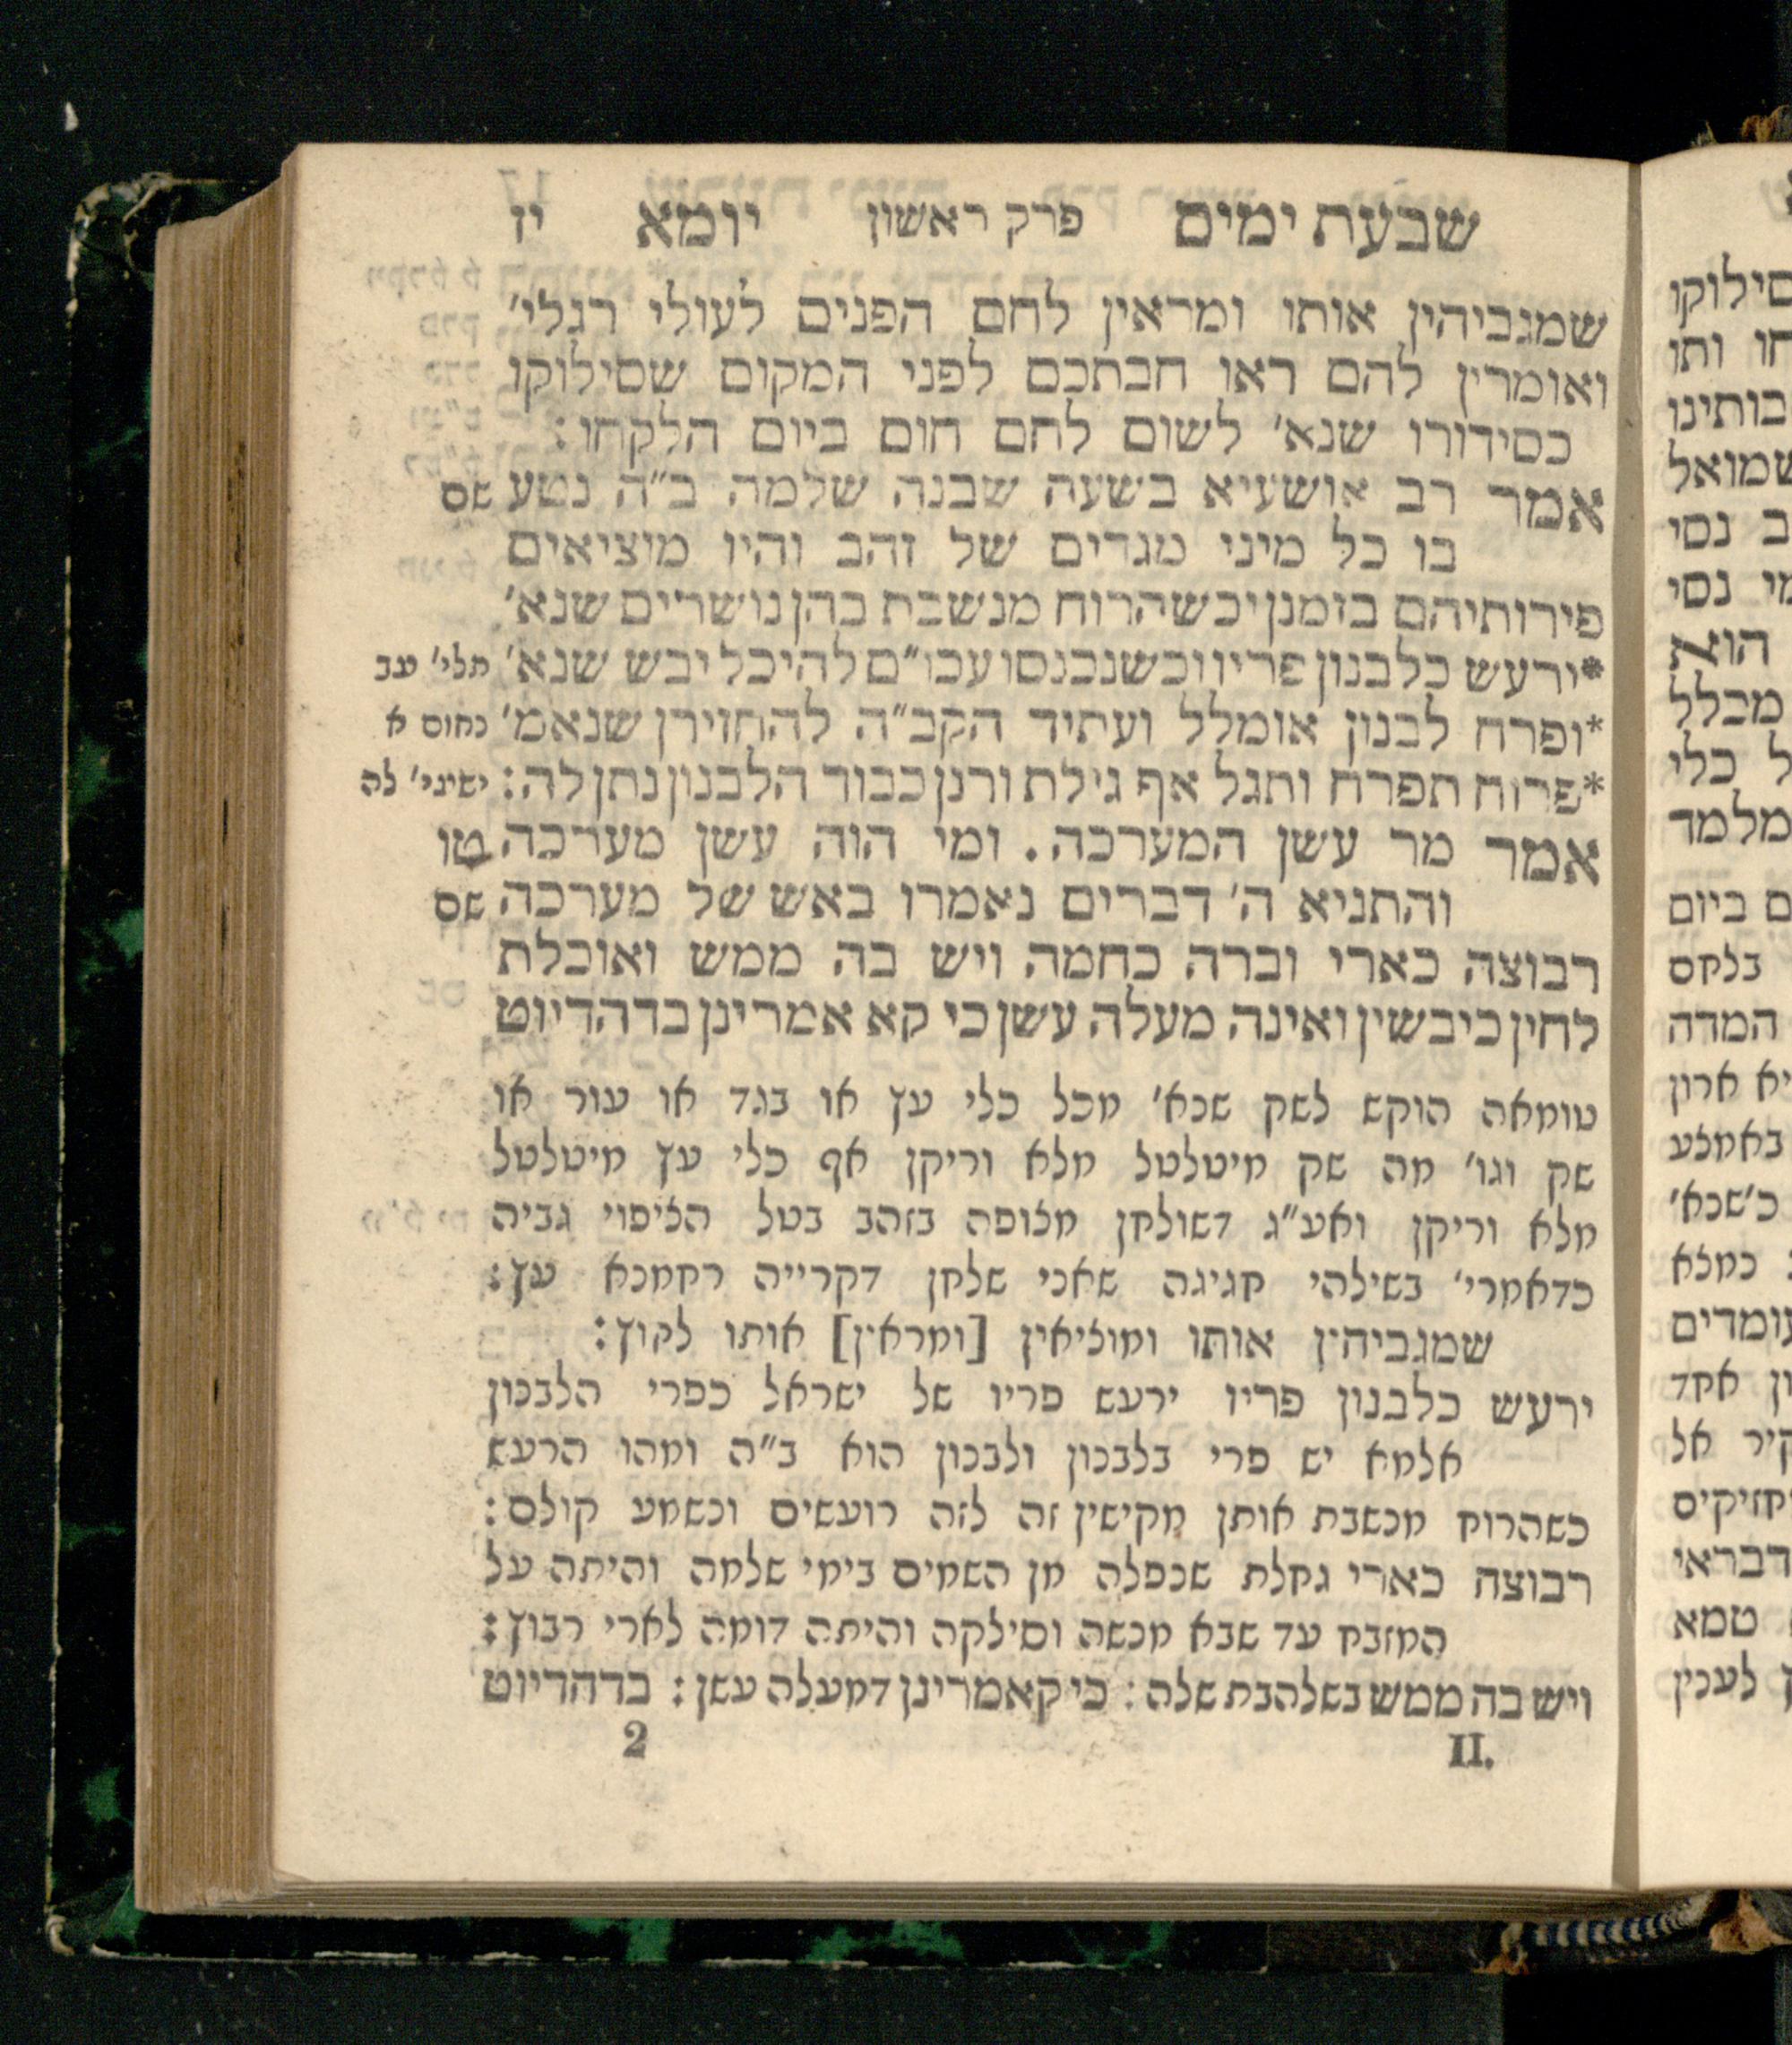 שבעת ימים פרק ראשון יומא יז
שמגביהין אותו ומראין לחם הפנים לעולי רגלי׳
ואומרין להם ראו חבתכם לפני המקום שסילוקו
כסידורו שנא׳ לשום לחם חום ביום הלקחו:
אמר רב אושעיא בשעה שבנה שלמה ב״ה נטע שם
בו כל מיני מגדים של זהב והיו מוציאים
פירותיהם בזמנן וכשהרוח מנשבת בהן נושרים שנא׳
*ירעש כלבנון פריו וכשנכנסו עכו״ם להיכל יבש שנא׳ תלי׳ עב
*ופרח לבנון אומלל ועתיד הקב״ה להחזירן שנאמ׳ נחום א
*פרוח תפרח ותגל אף גילת ורנן כבוד הלבנון נתן לה: ישעי׳ לה
אמר מר עשן המערכה. ומי הוה עשן מערכה טו
והתניא ה׳ דברים נאמרו באש של מערכה שם
רבוצה כארי וברה כחמה ויש בה ממש ואוכלת
לחין כיבשין ואינה מעלה עשן כי קא אמרינן בדהדיוט
טומאה הוקש לשק שנא׳ מכל כלי עץ או בגד או עור או
שק וגו׳ מה שק מיטלטל מלא וריקן אף כלי עץ מיטלטל
מלא וריקן ואע״ג דשולחן מצופה בזהב בטל הציפוי גביה
כדאמרי׳ בשילהי חגיגה שאני שלחן דקרייה רחמנא עץ:
שמגביהין אותו ומוציאין [ומראין] אותו לחוץ:
ירעש כלבנון פריו ירעש פריו של ישראל כפרי הלבנון
אלמא יש פרי בלבנון ולבנון הוא ב״ה ומהו הרעש
כשהרוח מנשבת אותן מקישין זה לזה רועשים ונשמע קולם:
רבוצה כארי גחלת שנפלה מן השמים בימי שלמה והיתה על
המזבח עד שבא מנשה וסילקה והיתה דומה לארי רבוץ:
ויש בה ממש בשלהבת שלה: כי קאמרינן דמעלה עשן: בדהדיוט
II. 2
סילוקו
חו ותו
בותינו
שמואל
ב נסי
מי נסי
הוא
מכלל
ל כלי
מלמד
ם ביום
בלקס
המדה
יא ארון
באמצע
כ׳שנא׳
נמצא
עומדים
ון אחד
קיר אל
דבראי
טמא
לענין